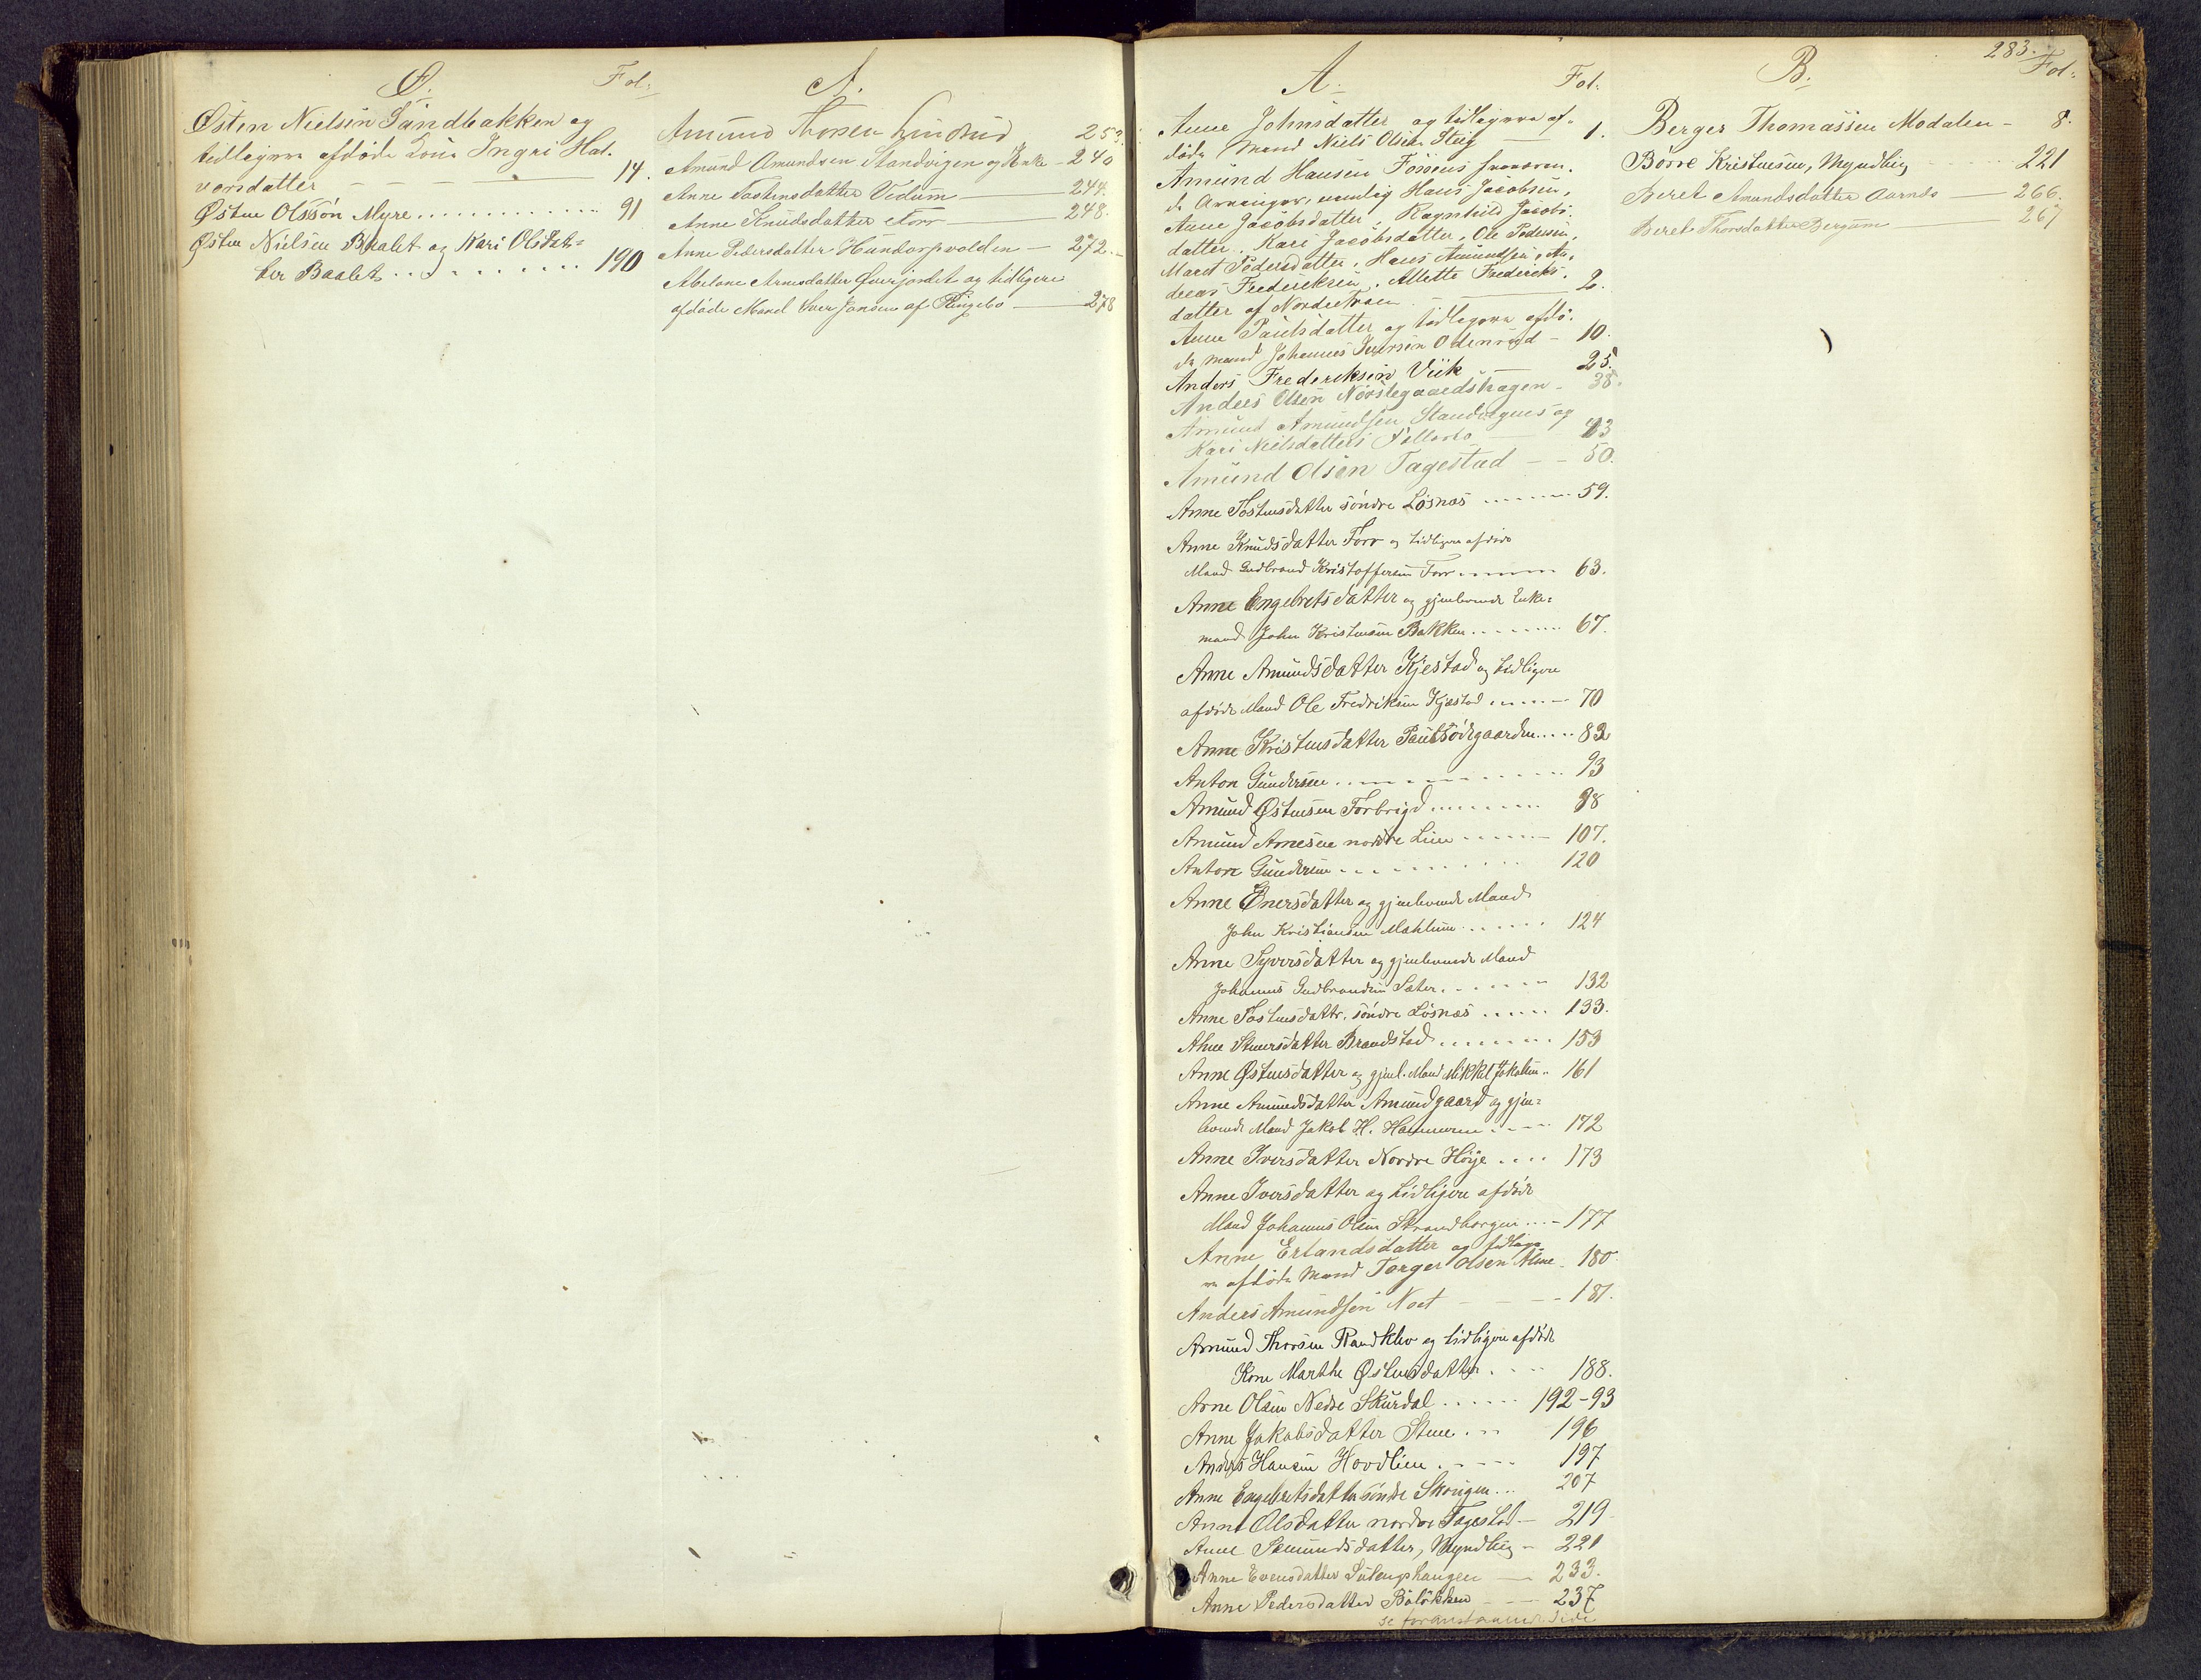 Ø.
Fol:
Østen Nielsen Sandbakken og
tidligere afdøde Kone Ingri Hal-
vorsdatter - - - 14.
Østen Olssøn Myre ............. 91
Østen Nielsen Baalet og Kari Olsdat=
ter Baalet ........ 190
A.
Amund Thorsen Lindrud 253.
Amund Amundsen Standvigen og Enke - 240
Anne Tostensdatter Vedum - 244.
Anne Knudsdatter Forr - 248.
Anne Pedersdatter Hundorpvolden - 272.
Abelone Arnesdatter Qverjordet og tidligere
afdøde Mand Iver Jansen af Ringebo - 278
A.
Fol:
Anne Johnsdatter og tidligere af-
døde Mand Niels Olsen Steig 1.
Amund Hansen Fossens fraværen-
de Arvinger, nemlig Hans Jacobsen,
Anne Jacobsdatter, Ragnhild Jacobs-
datter, Kari Jacobsdatter, Ole Pedersen,
Marit Pedersdatter, Hans Amundsen, An-
dreas Frederiksen, Allette Frederiks-
datter af Nordre 2.
Anne Paulsdatter og tidligere afdø-
de Mand Johannes Iversen Odenrud - 10.
Anders Frederiksen Viik 25.
Anders Olsen Nørstegaardshagen - 38.
Amund Amundsen Standvignes og
Kari Nielsdatters Fællesbo 43
Amund Olsen Fagestad - - 50.
Anne Tostensdatter søndre Løsnæs ........ 59.
Anne Knudsdatter Forr og tidligere afdøde
Mand Gudbrand Kristoffersen Forr ....... 63.
Anne Engebretsdatter og gjenlevende Enke=
mand John Kristensen Bakken ........ 67.
Anne Amundsdatter Kjestad og tidligere
afdøde Mand Ole Fredriksen Kjæstad ...... 70
Anne Kristensdatter Paulsødegaarden ..... 82
Anton Gundersen ............. 93
Amund Østensen Forbrigd ........ 98
Amund Arnesen nordre Lien ...... 107.
Anton Gundersen ........ 120
Anne Enersdatter og gjenlevende Mand
John Kristiansen Mæhlum ...... 124
Anne Syversdatter og gjenlevende Mand
Johannes Gudbrandsen Sæter ....... 132
Anne Tostensdattr. søndre Løsnæs ..... 133.
Anne Steuersdatter Brandstad ....... 153
Anne Østensdatter og gjenl. Mand Mikkel Jakobsen .. 161
Anne Amundsdatter Amundgaard og gjen=
levende Mand Jakob H. Hammeren .... 172
Anne Iversdatter Nordre Høije .... 173
Anne Iversdatter og tidligere afdøde
Mand Johannes Olsen Strandborgen .... 177
Anne Erlandsdatter og tidlige-
re afdøde Mand Torger Olsen Alme - 180
Anders Amundsen Noet - - - 181.
Amund Thorsen Randklev og tidligere afdøde
Kone Marthe Østensdatter .... 188.
Arne Olsen Nedre Skurdal ...... 192-93
Anne Jakobsdatter Stene ... 196
Anders Hansen Hovdlien ..... 197
Anne Engebretsdatter søndre Skougen ... 207
Anne Olsdatter nordre Fagestad - 219
Anne Semundsdatter, Myndlig - 221
Anne Evensdatter Sulengshaugen - 233.
Anne Pedersdatter Bøløkken - - 237
se foranstaaende Side
B.
283.
Fol:
Berger Thomassen Modalen - 8.
Børre Kristensen, Myndling ...... 221
Beret Amundsdatter Aarnes - 266.
Beret Thorsdatter Bergum - 267